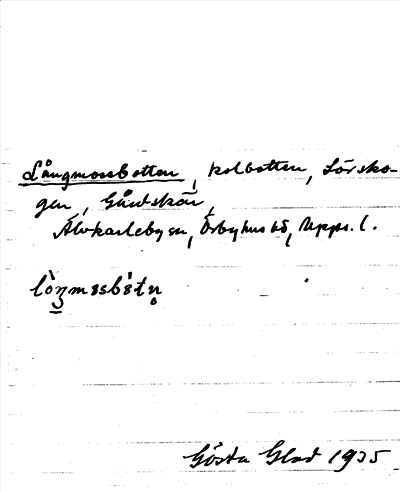 Långmossbotten, kolbotten, Sörsko-
gen, Gårdskär,
Älvkarleby sn, Örbyhus hd, Upps. l.
Gösta Glad 1935